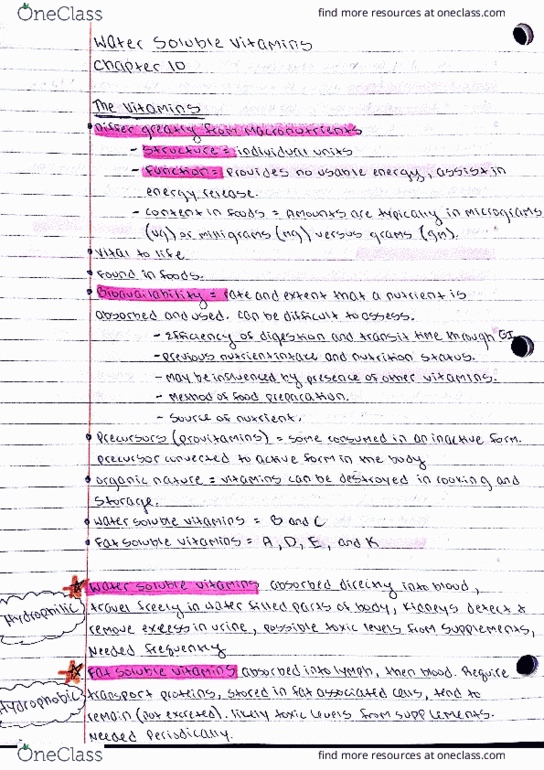 OneClass
find more resources at oneclass.com
Water Soluble Vitamins
Chapter 10
The Vitamins
• Differ greatly from Macronutrients
- Structure = individual units
- Function = provides no usable energy, assist in
energy release.
- content in foods = Amounts are typically in micrograms
(ug) or milligrams (mg) versus grams (gm).
• Vital to life
• Found in foods.
• Bioavailability = rate and extent that a nutrient is
absorbed and used. can be difficult to assess.
- Efficiency of digestion and transit time through GI
- previous nutrient intake and nutrition status.
- may be influenced by presence of other vitamins.
- Method of food preparation.
- Source of nutrient.
• Precursors (provitamins) = some consumed in an inactive form.
precursor converted to active form in the body
• organic nature = vitamins can be destroyed in cooking and
storage.
• water soluble vitamins = B and C
• Fat soluble vitamins = A, D, E, and K
Water soluble vitamins absorbed directly into blood,
Hydrophilic
travel freely in water filled parts of body, kidneys detect &
remove excess in urine, possible toxic levels from supplements,
Needed frequently
Fat soluble vitamins absorbed into lymph, then blood. Require
Hydrophobic
transport proteins, stored in fat associated cells, tend to
remain (not excreted). likely toxic levels from supplements.
Needed periodically.
OneClass
find more resources at oneclass.com